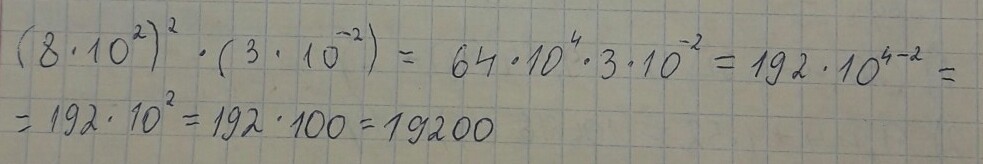 (8·10²)²·(3·10⁻²) = 64·10⁴·3·10⁻² = 192·10⁴⁻² =
= 192·10² = 192·100 = 19200